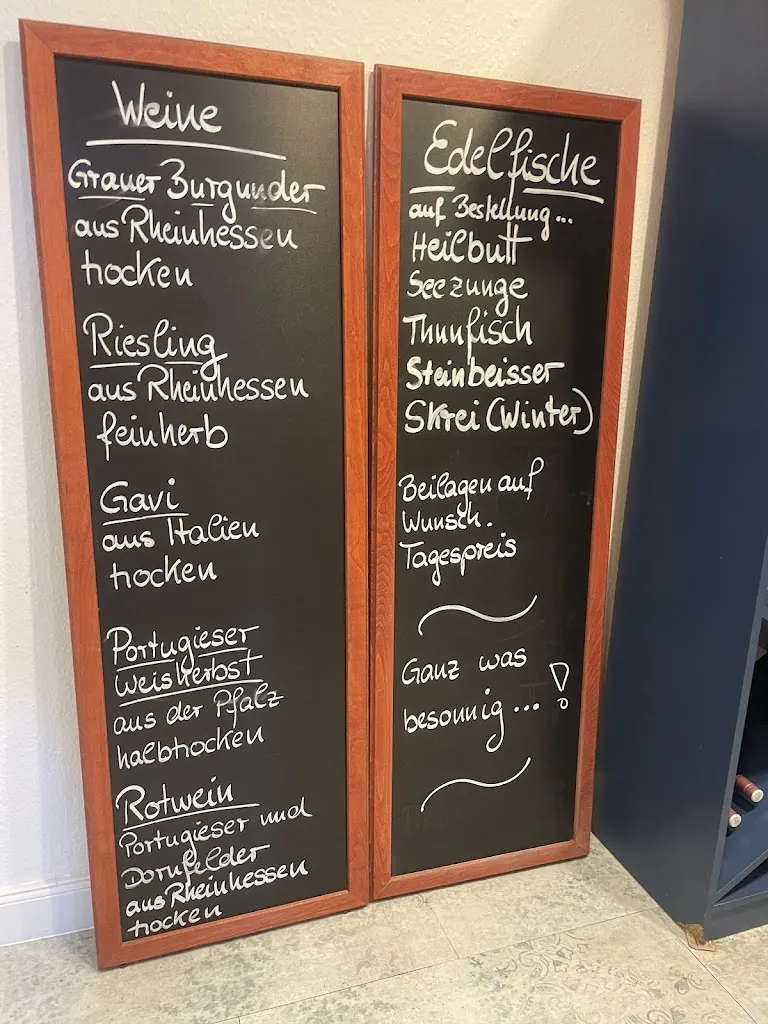 Weine
Grauer Burgunder
aus Rheinhessen
trocken
Riesling
aus Rheinhessen
feinherb
Gavi
aus Italien
trocken
Portugieser
Weisherbst
aus der Pfalz
halbtrocken
Rotwein
Portugieser und
Dornfelder
aus Rheinhessen
trocken
Edelfische
auf Bestellung...
Heilbutt
Seezunge
Thunfisch
Steinbeisser
Skrei (Winter)
Beilagen auf
Wunsch.
Tagespreis
Ganz was
besonnig...!